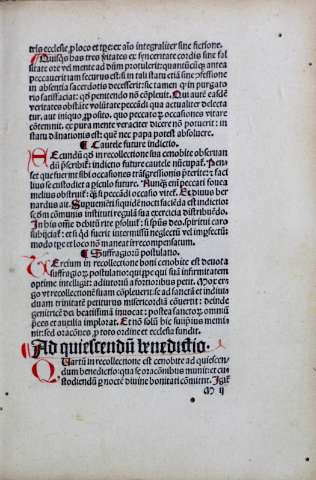 tris ecclesie ꝑ loco et tꝑe et año integraliter sine fictione.
Quisq̃s has tres v̓itates ex synceritate cordis sine fal
sitate ore vel mente ad dñm protulerit: quantũcũq̃ antea
peccauerit iam securus est: si in tali statu etiã sine ꝯfessione
in absentia sacerdotis decesserit: sic tamen q̃ in purgato
rio satisfaciat: qð penitendo nõ cõpleuit. Qui aut̃ easdẽ
veritates obstãte volũtate peccãdi qua actualiter delecta
tur. aut iniquo ꝓposito. quo peccatoꝝ occasiones vitare
cõtemnit. ex pura mente veraciter dicere nõ potuerit: in
statu dãnationis est: quẽ nec papa potest absoluere.
¶ Cautele future indictio.
SEcundũ qð in recollectione sua cenobite obseruan
dũ p̃scribit̃: indictio future cautele nũcupat̃. Pen
set que fuerint sibi occasiones trãsgressionis p̃terite: ⁊ faci
lius se custodit a p̃iculo future. Nunq̃ em̃ peccati fouea
melius obstruit̃: q̃ si peccãdi occasio vitet̃. Et diuus ber
nardus ait. Supueniẽti siquidẽ nocti faciẽda est indictio
scðm cõmunis instituti regulã sua exercitia distribuẽdo.
In hijs om̃ibꝰ debitũ rite ꝑsoluit: si ipsũs deo. spiritui caro
subijciat̃: et si qð fuerit intermissũ neglectũ vel imꝑfectũ:
modo tꝑe et loco nõ maneat irrecompensatum.
¶ Suffragioꝝ postulatio.
TErcium in recollectione boni cenobite est deuota
suffragioꝝ postulatio: quippe qui suã infirmitatem
optime intelligit: adiutoriũ a fortioribus petit. Mox er
go vt recollectionẽ suam cõpleuerit: se ad sanctã et indiui
duam trinitatẽ petiturus misericordiã cõuertit: deinde
genitricẽ dei beatissimã inuocat: postea sanctoꝝ om̃niũ
p̃ces et auxilia implorat. Et nõ solũ hic sui ipsius memi
nit: sed oracõnes ꝓ toto ordine et ecclesia fundit.
Ad quiescendũ benedictio.
QUartũ in recollectione est cenobite ad quiescen
dum benedictio: qua se oracõnibus munit: et cu
stodiendũ ꝑ noctẽ diuine bonitati cõmittit. Igit̃
M ij